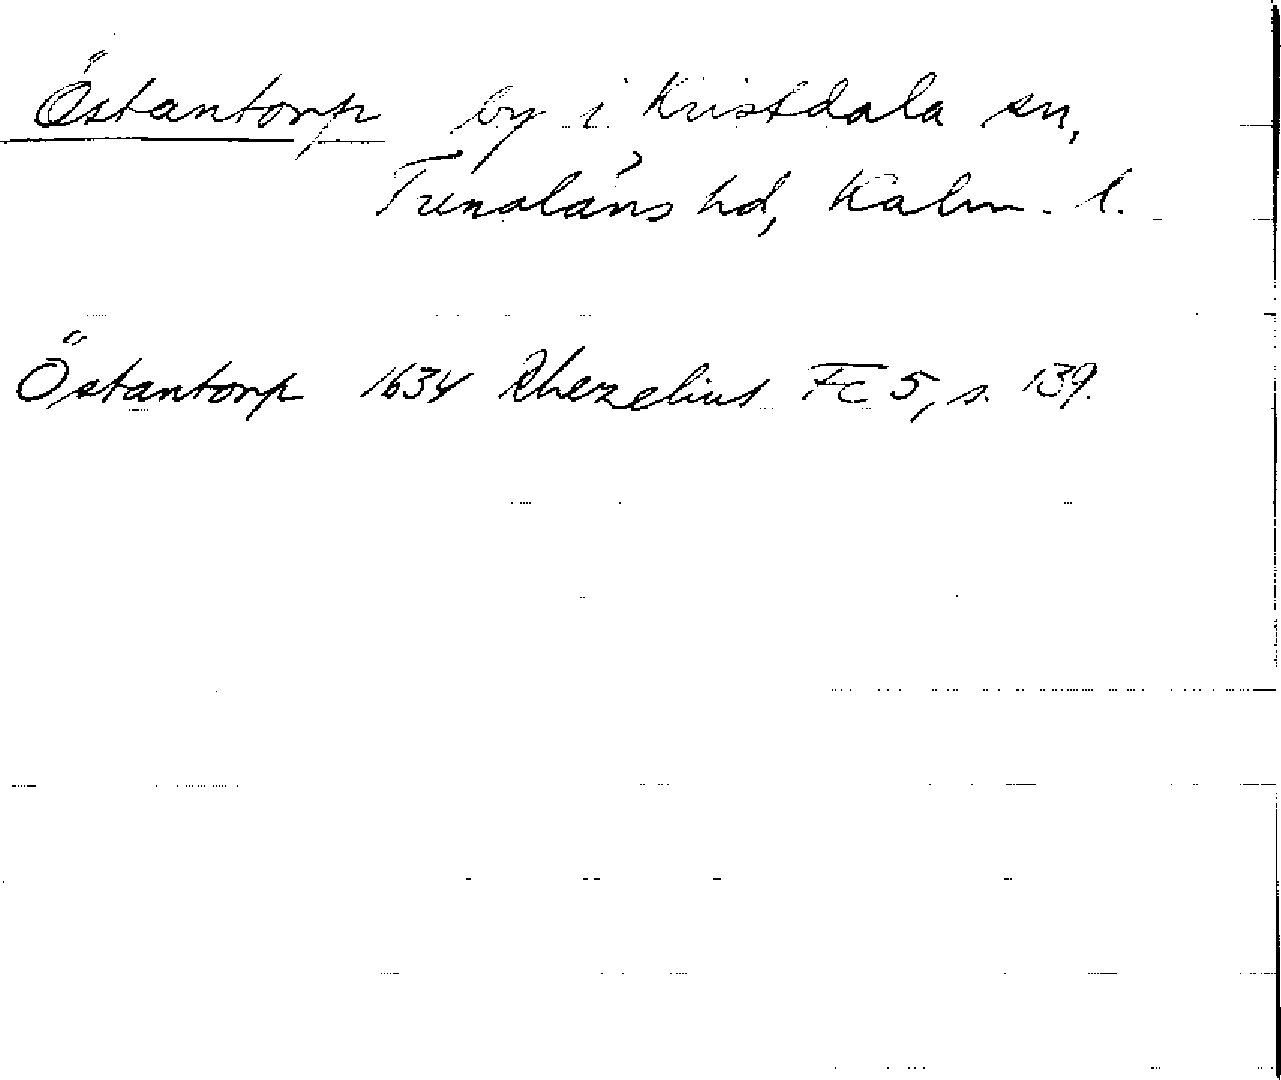 Östantorp by i Kristdala sn,
Tunaläns hd, Kalm. l.
Östantorp 1634 Rhezelius Fc 5, s. 139.